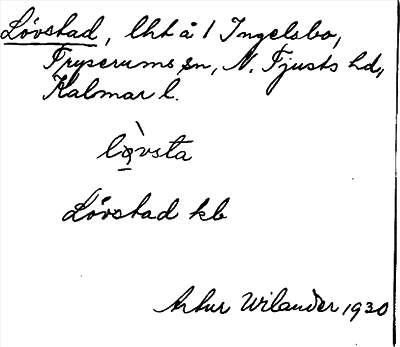 Lövstad, lht å 1 Ingelsbo,
Tryserums sn, N. Tjusts hd,
Kalmar l.
lò̱vsta
Lövstad kb
Artur Wilander 1930